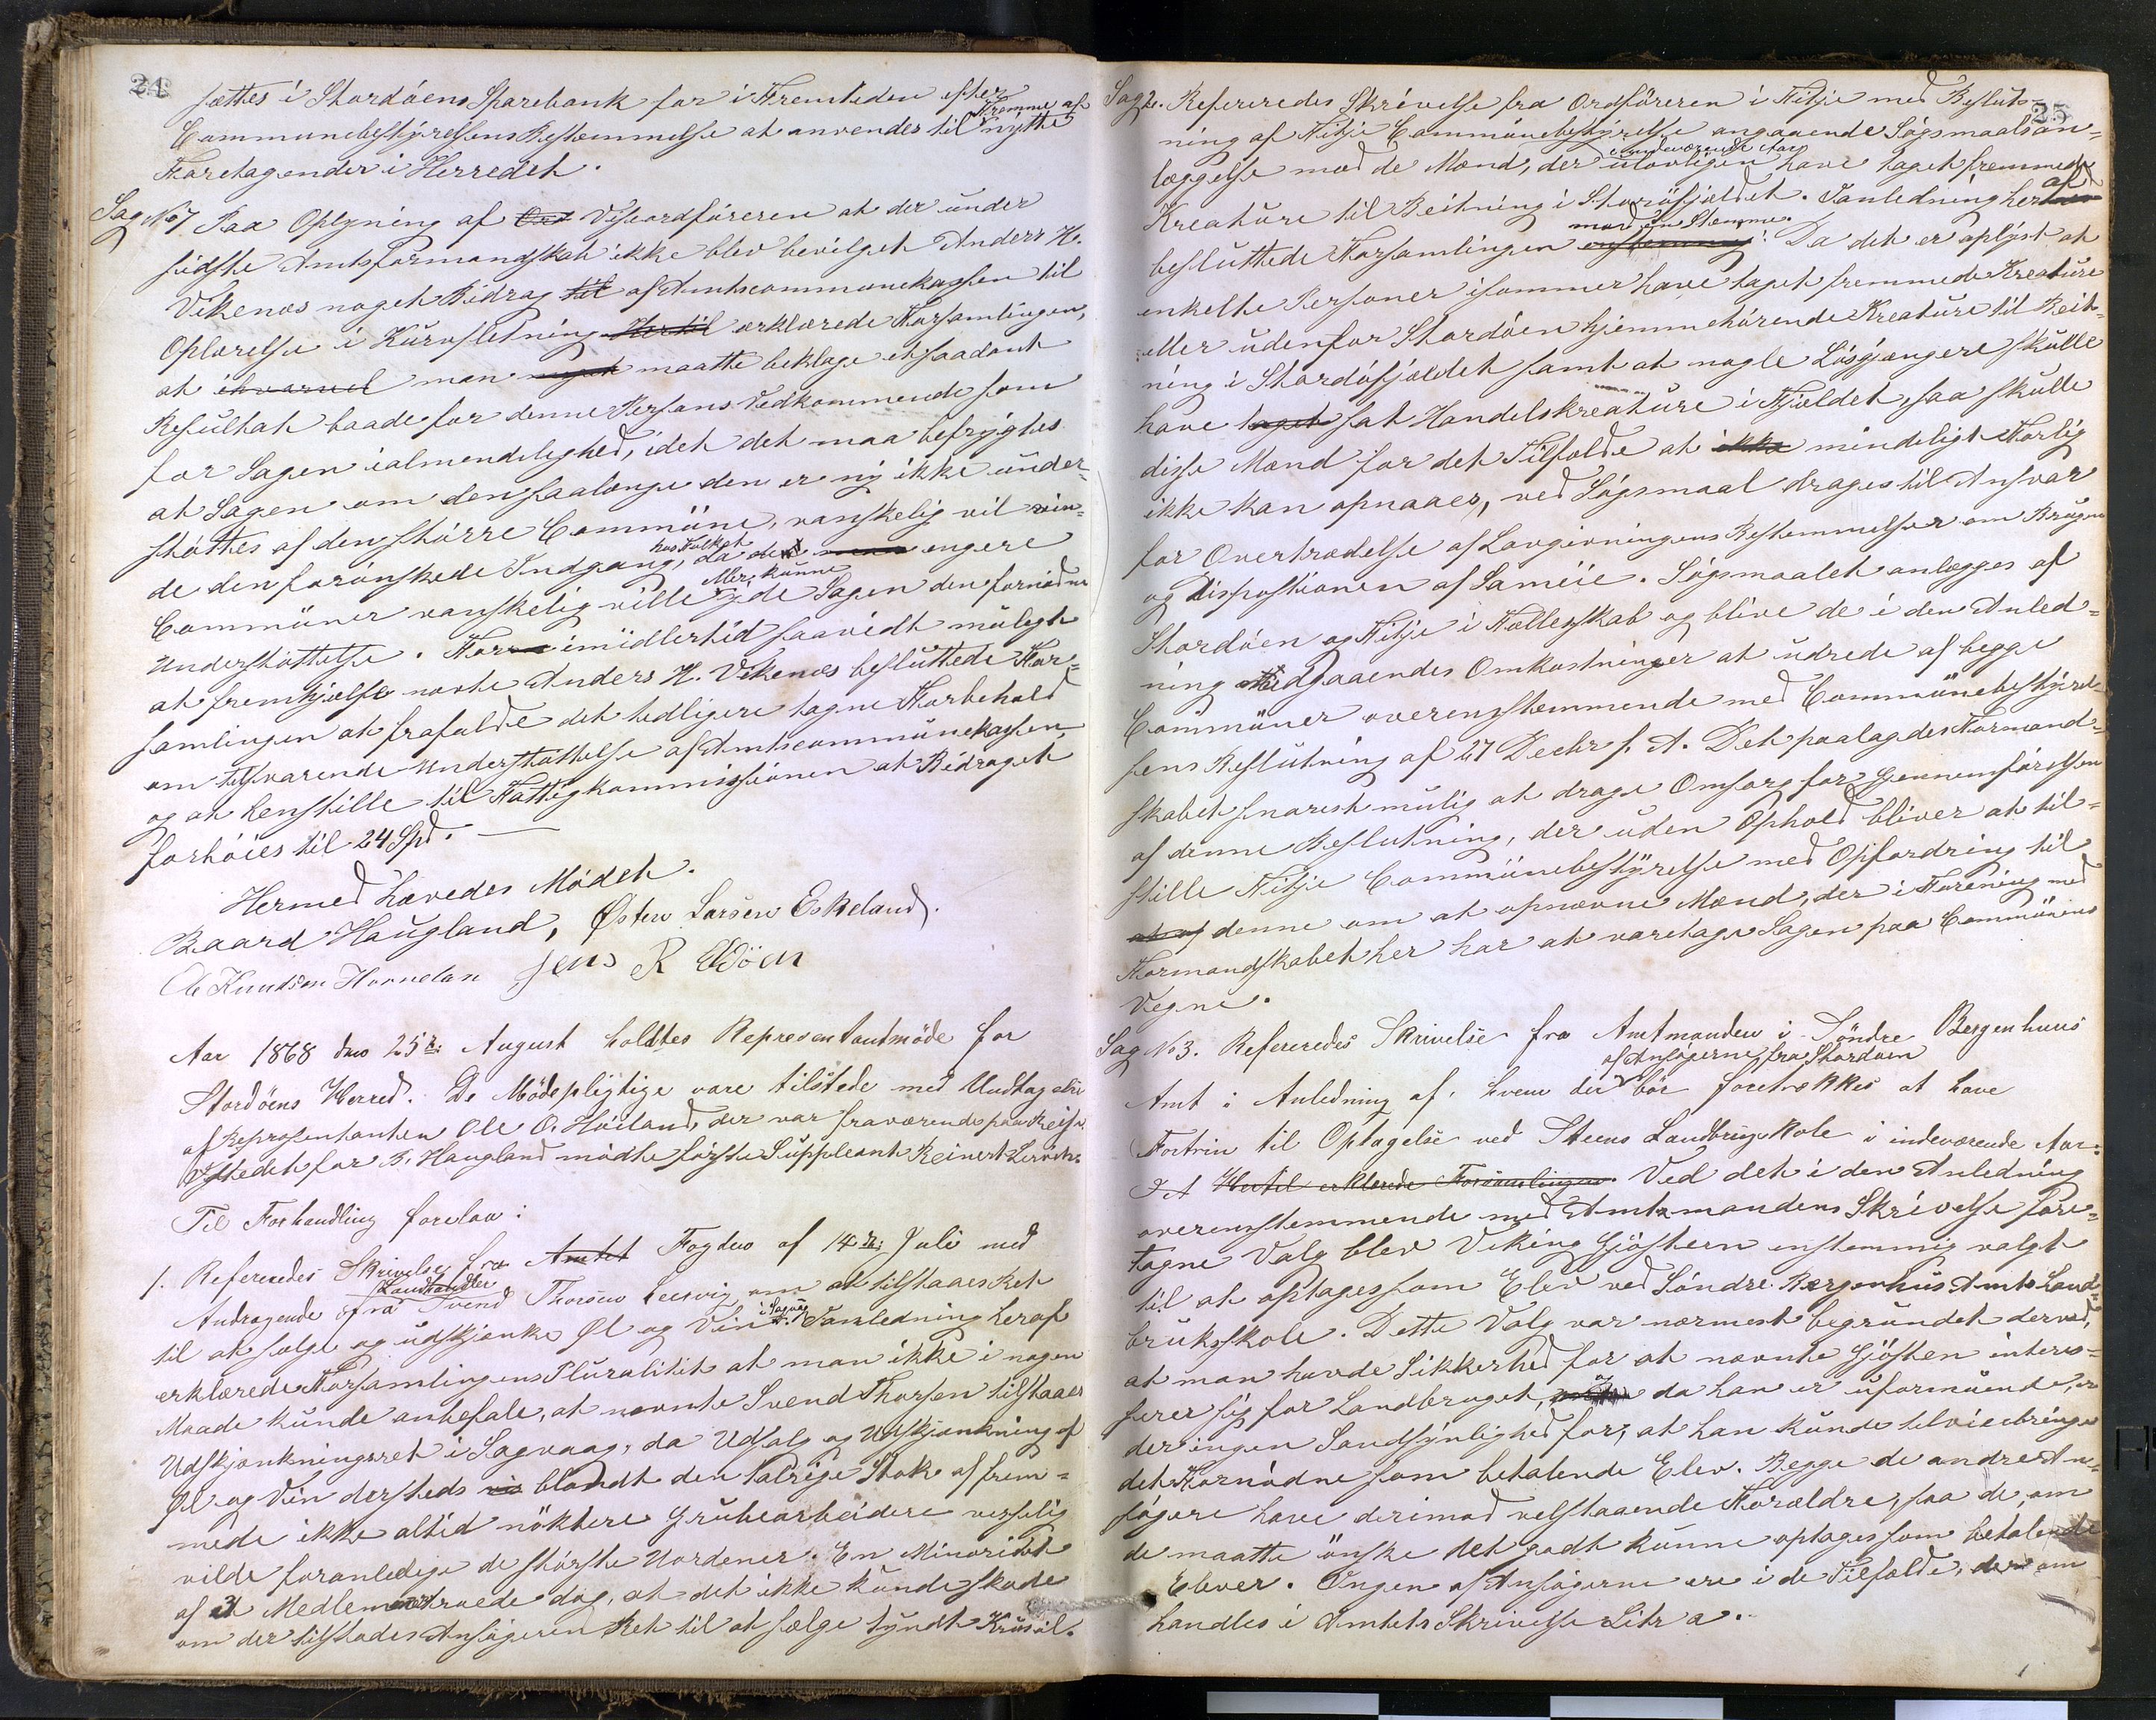 24
sættes i Stordøens Sparebank for i Fremtiden efter
Communebestyrelsens Bestemmelse at anvendes til Fremme af nyttige
Foretagender i Herredet.
Sag No 7 Paa Oplysning af Ord Viseordføreren at der under
sidste Amtsformandskab ikke blev bevilget Anders H.
Vikenes noget Bidrag til af Amtscommunekassen til
Oplærelse i Kurvfletning Hertil erklærede Forsamlingen,
at man maatte beklage et saadant
Resultat baade for denne Persons Vedkommende som
for Sagen i almendelighed, idet det maa befrygtes
at Sagen om den saalænge den er ny ikke under-
støttes af den større Commune, vanskelig vil vin-
de den forønskede Indgang hos Folket, da de engere
Communer vanskelig ville eller kunne yde Sagen den fornødne
Understøttelse. For imidlertid saavidt muligt
at fremhjælpe nævnte Anders H. Vikenes besluttede For-
samlingen at frafalde det tidligere tagne Forbehold
om tilsvarende Understøttelse af Amtscommunekassen,
og at henstille til Fattigkommissionen at Bidraget
forhøies til 24 Spd.
Hermed hævedes Mødet.
Baard Haugland, Østen Larsen Eskeland.
Ole Knudsen Hornelan Jens R Udøen
Aar 1868 den 25de August holdtes Representantmøde for
Stordøens Herred. De Mødepligtige vare tilstede med Undtagelse
af Repræsentanten Ole O. Høiland, der var fraværende paa Reise.
Istedet for B. Haugland mødte første Suppleant Reinert Lervik.
Til Forhandling forelaa:
1. Refereredes Skrivelse fra Amtet Fogden af 14de Juli med
Andragende fra Landhandler Svend Thorsen Leervig, om at tilstaaes Ret
til at sælge og udskjænke Øl og Vin i Sagvaag. I Anledning heraf
erklærede Forsamlingens Pluralitet at man ikke i nogen
Maade kunde anbefale, at nævnte Svend Thorsen tilstaaes
Udskjænkningsret i Sagvaag, da Udsalg og Udskjænkning af
Øl og Vin dersteds blandt den talrige Stok af frem-
mede ikke altid nøktere Grubearbeidere rimelig
vilde foranledige de største Uordener. En Minoritet
af 3 Medlemmer troede dog, at det ikke kunde skade
om der tilstodes Ansøgeren Ret til at sælge tyndt Krusøl.
25
Sag 2. Refereredes Skrivelse fra Ordføreren i Fitje med Beslut-
ning af Fitje Communebestyrelse angaaende Søgsmaalsan-
læggelse mod de Mænd, der indeværende Aar ulovligen have taget fremmede
Kreature til Beitning i Stordøfjeldet. I Anledning heraf
besluttede Forsamlingen mod en Stemme: Da det er oplyst at
enkelte Personer i sommer have taget fremmede Kreature
eller udenfor Stordøen hjemmehørende Kreature til Beit-
ning i Stordøfjeldet samt at nogle Løsgjængere skulle
have taget sat Handelskreature i Fjeldet, saa skulle
disse Mænd for det Tilfælde at ikke mindeligt Forlig
ikke kan opnaaes, ved Søgsmaal drages til Ansvar
for Overtrædelse af Lovgivningens Bestemmelser om Brugen
og Dispositionen af Sameie. Søgsmaalet anlægges af
Stordøen og Fitje i Fælleskab og blive de i den Anled-
ning medgaaendes Omkostninger at udrede af begge
Communer overensstemmende med Communebestyrel-
sens Beslutning af 27 Decbr f. A. Det paalagdes Formand-
skabet snarest mulig at drage Omsorg for Gjennemførelsen
af denne Beslutning, der uden Ophold bliver at til-
stille Fitje Communebestyrelse med Opfordring til
at af denne om at opnævne Mænd, der i Forening med
Formandskabet her har at varetage Sagen paa Communens
Vegne.
Sag No 3. Refereredes Skrivelse fra Amtmanden i Søndre Bergenhuus
Amt i Anledning af, hvem der af Ansøgerne fra Stordøen bør foretrækkes at have
Fortrin til Optagelse ved Steens Landbrugsskole i indeværende Aar.
Hertil erklærede Forsamlingen. Ved det i den Anledning
overensstemmende med Amtmandens Skrivelse fore-
tagne Valg blev Viking Gjøsteen enstemmig valgt
til at optages som Elev ved Søndre Bergenhus Amts Land-
bruksskole. Dette Valg var nærmest begrundet derved,
at man havde Sikkerhed for at nævnte Gjøsten interes-
serer sig for Landbruget, da han er uformuende, er
der ingen Sandsynlighed for, at han kunde tilveiebringe
det Fornødne som betalende Elev. Begge de andre An-
søgere have derimod velstaaende Forældre, saa de, om
de maatte ønske det godt kunne optages som betalende
Elever. Ingen af Ansøgerne ere i de Tilfælde, der om
handles i Amtets Skrivelse Litr a.